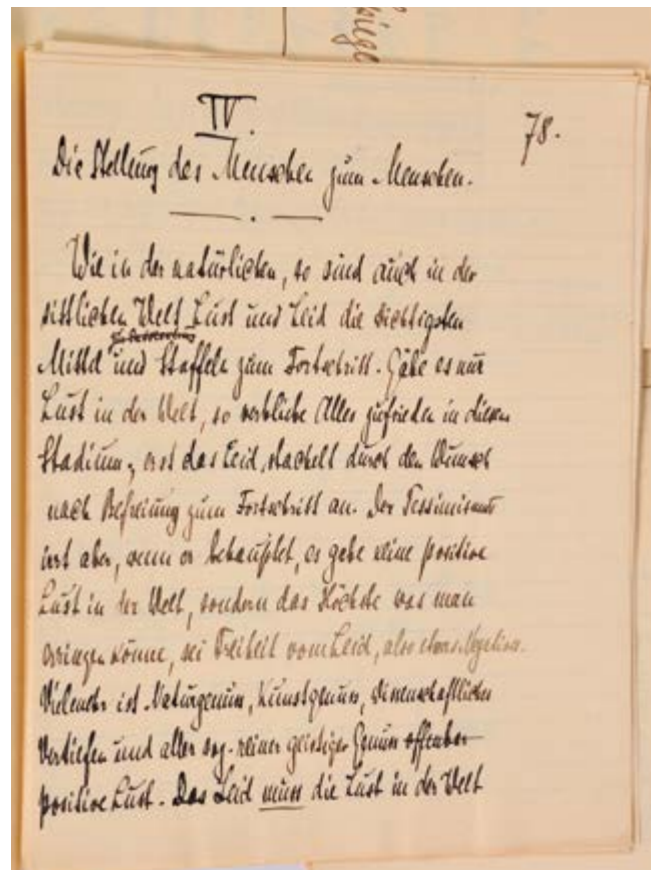 siege
IV.
78.
Die Stellung des Menschen zum Menschen.
Wie in der natürlichen, so sind auch in der
sittlichen Welt Lust und Leid die wichtigsten
Mittel und Staffeln zum Fortschritt. Gäbe es nur
Lust in der Welt, so verbliebe Alles zufrieden in diesem
Stadium, erst das Leid stachelt durch den Wunsch
nach Befreiung zum Fortschritt an. Der Pessimismus
irrt aber, wenn er behauptet, es gebe keine positive
Lust in der Welt, sondern das Höchste was man
erringen könne, sei Freiheit vom Leid, also etwas Negatives.
Vielmehr ist Naturgenuss, Kunstgenuss, wissenschaftliches
Vertiefen und aller sog. reiner geistiger Genuss offenbar
positive Lust. Das Leid muss die Lust in der Welt